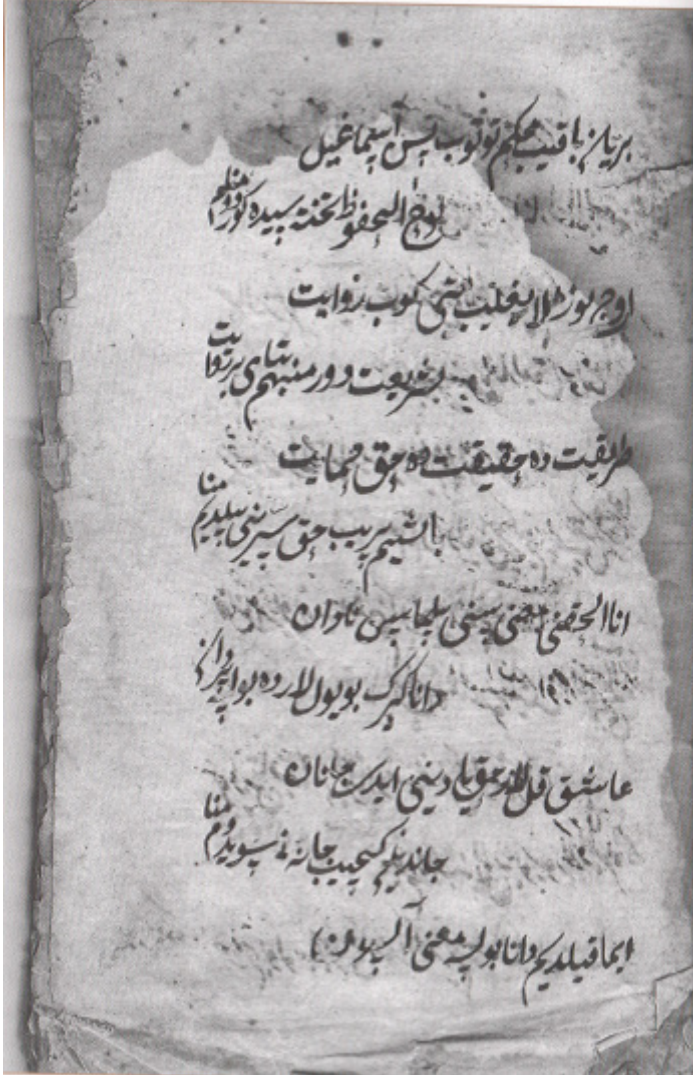 باقیب محکم توتوب
لوح المحفوظ تخته سیده کوردوم منا
اوچ یوز ملا ییغلیب بیتی کوب روایت
شریعت دور من هم بتای بر روایت
طریقت ده حقیقت ده حق حمایت
باشیم بریب حق سرینی بیلدیم منا
انا الحقنی معنی سینی بیلماس نادان
دانا کیرک بو یول لارده بو
عاشق قل لار حق یادینی ایدی جانان
جاندین کیچیب جانانه نی سویدوم منا
ایما قیلدیم دانا بولسه معنی آلسون